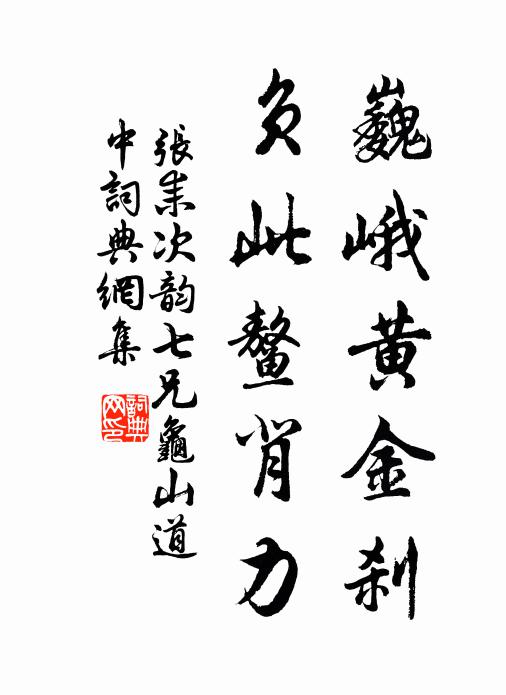 巍峨黄金刹
负此鳌背力
張耒次韵七兄龜山道
中詞典網集
詞典
网印